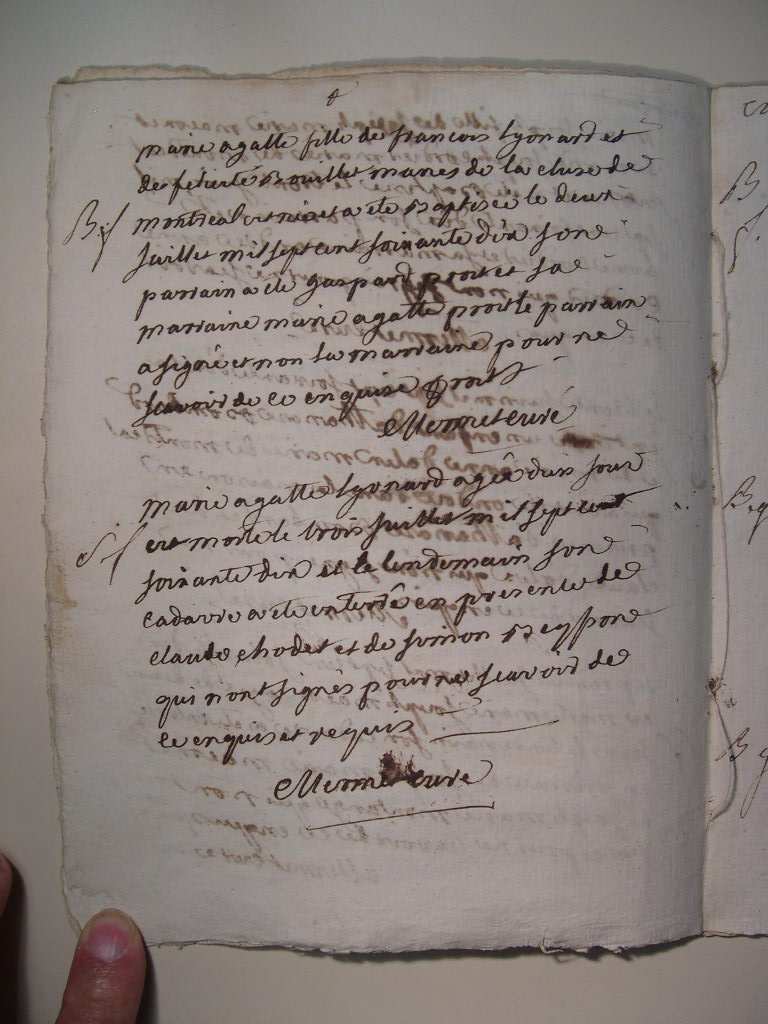 marie agatte fille de francois lyonard et
de felicité Bouillet mariés de la cluse de
B./. montreal est née et a été Baptisée le deux
juillet mil sept cent soixante dix son
parrain a été gaspard prost et sa
marraine marie agatte prost le parrain
a signé et non la marraine pour ne
scavoir de ce enquise prost
Mermet curé
marie agatte lyonard agée d'un jour
S./. est morte le trois juillet mil sept cent
soixante dix et le lendemain son
cadavre a été enterré en présence de
claude chodet et de simon
qui n'ont signés pour ne scavoir de
ce enquis et requis
Mermet curé
B
B